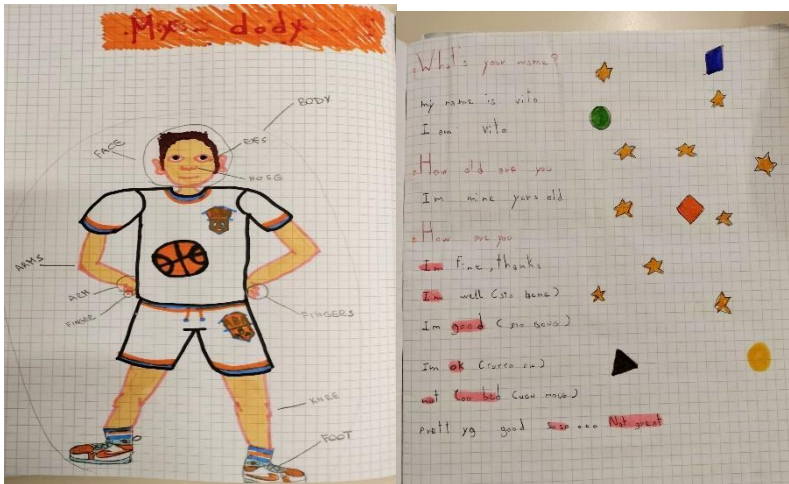 My dody
BODY
FACE
EYES
NOSE
ARMS
ARM
FINGER
FINGERS
KNEE
FOOT
What's your name?
my name is vito
I am vito
How old are you
I'm nine yars old
How are you
I'm fine, thanks
I'm well (sto bene)
I'm good (sto bene)
I'm ok (tutto ok)
not too bad (non male)
good so so... Not great